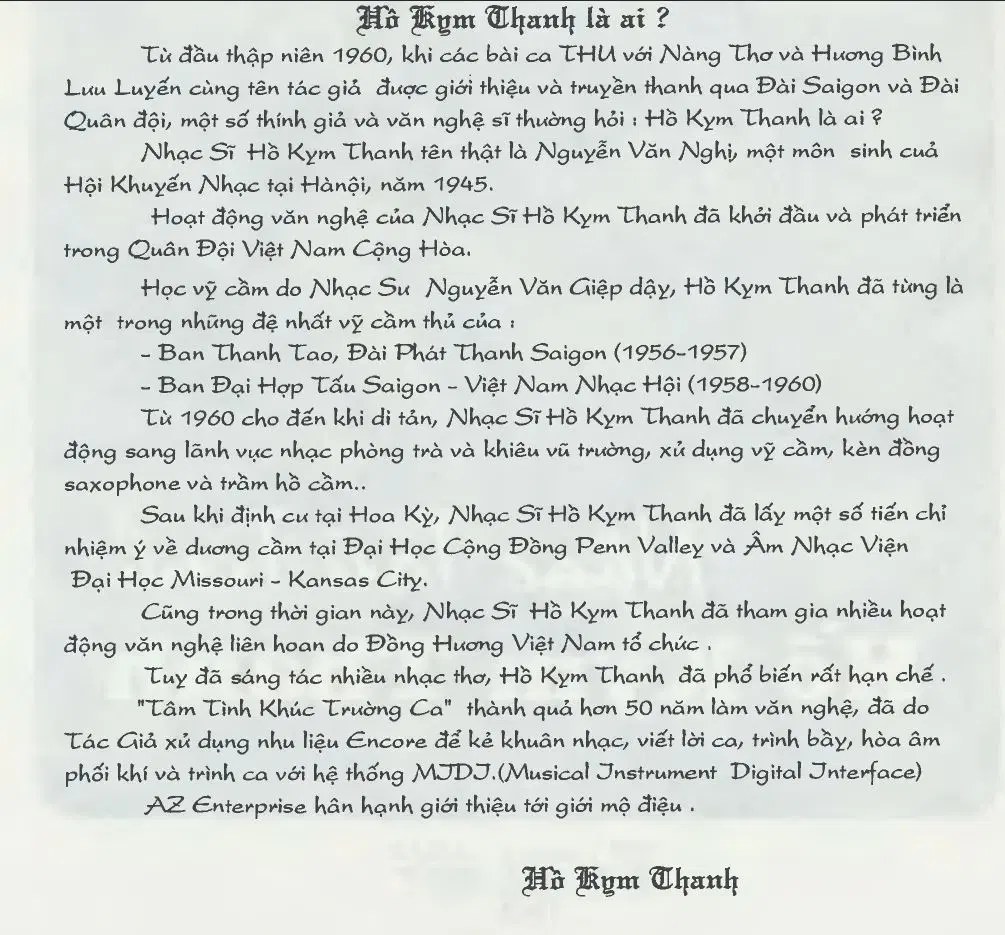 Hồ Kym Thanh là ai ?
Từ đầu thập niên 1960, khi các bài ca THU với Nàng Thơ và Hương Bình
Lưu Luyến cùng tên tác giả được giới thiệu và truyền thanh qua Đài Saigon và Đài
Quân đội, một số thính giả và văn nghệ sĩ thường hỏi : Hồ Kym Thanh là ai ?
Nhạc Sĩ Hồ Kym Thanh tên thật là Nguyễn Văn Nghị, một môn sinh cuả
Hội Khuyến Nhạc tại Hànội, năm 1945.
Hoạt động văn nghệ của Nhạc Sĩ Hồ Kym Thanh đã khởi đầu và phát triển
trong Quân Đội Việt Nam Cộng Hòa.
Học vỹ cầm do Nhạc Sư Nguyễn Văn Giệp dậy, Hồ Kym Thanh đã từng là
một trong những đệ nhất vỹ cầm thủ của :
- Ban Thanh Tao, Đài Phát Thanh Saigon (1956-1957)
- Ban Đại Hợp Tấu Saigon - Việt Nam Nhạc Hội (1958-1960)
Từ 1960 cho đến khi di tản, Nhạc Sĩ Hồ Kym Thanh đã chuyển hướng hoạt
động sang lãnh vực nhạc phòng trà và khiêu vũ trường, xử dụng vỹ cầm, kèn đồng
saxophone và trầm hồ cầm..
Sau khi định cư tại Hoa Kỳ, Nhạc Sĩ Hồ Kym Thanh đã lấy một số tiến chỉ
nhiệm ý về dương cầm tại Đại Học Cộng Đồng Penn Valley và Âm Nhạc Viện
Đại Học Missouri - Kansas City.
Cũng trong thời gian này, Nhạc Sĩ Hồ Kym Thanh đã tham gia nhiều hoạt
động văn nghệ liên hoan do Đồng Hương Việt Nam tổ chức .
Tuy đã sáng tác nhiều nhạc thơ, Hồ Kym Thanh đã phổ biến rất hạn chế .
"Tâm Tình Khúc Trường Ca" thành quả hơn 50 năm làm văn nghệ, đã do
Tác Giả xử dụng nhu liệu Encore để kẻ khuân nhạc, viết lời ca, trình bầy, hòa âm
phối khí và trình ca với hệ thống MIDI.(Musical Instrument Digital Interface)
AZ Enterprise hân hạnh giới thiệu tới giới mộ điệu .
Hồ Kym Thanh